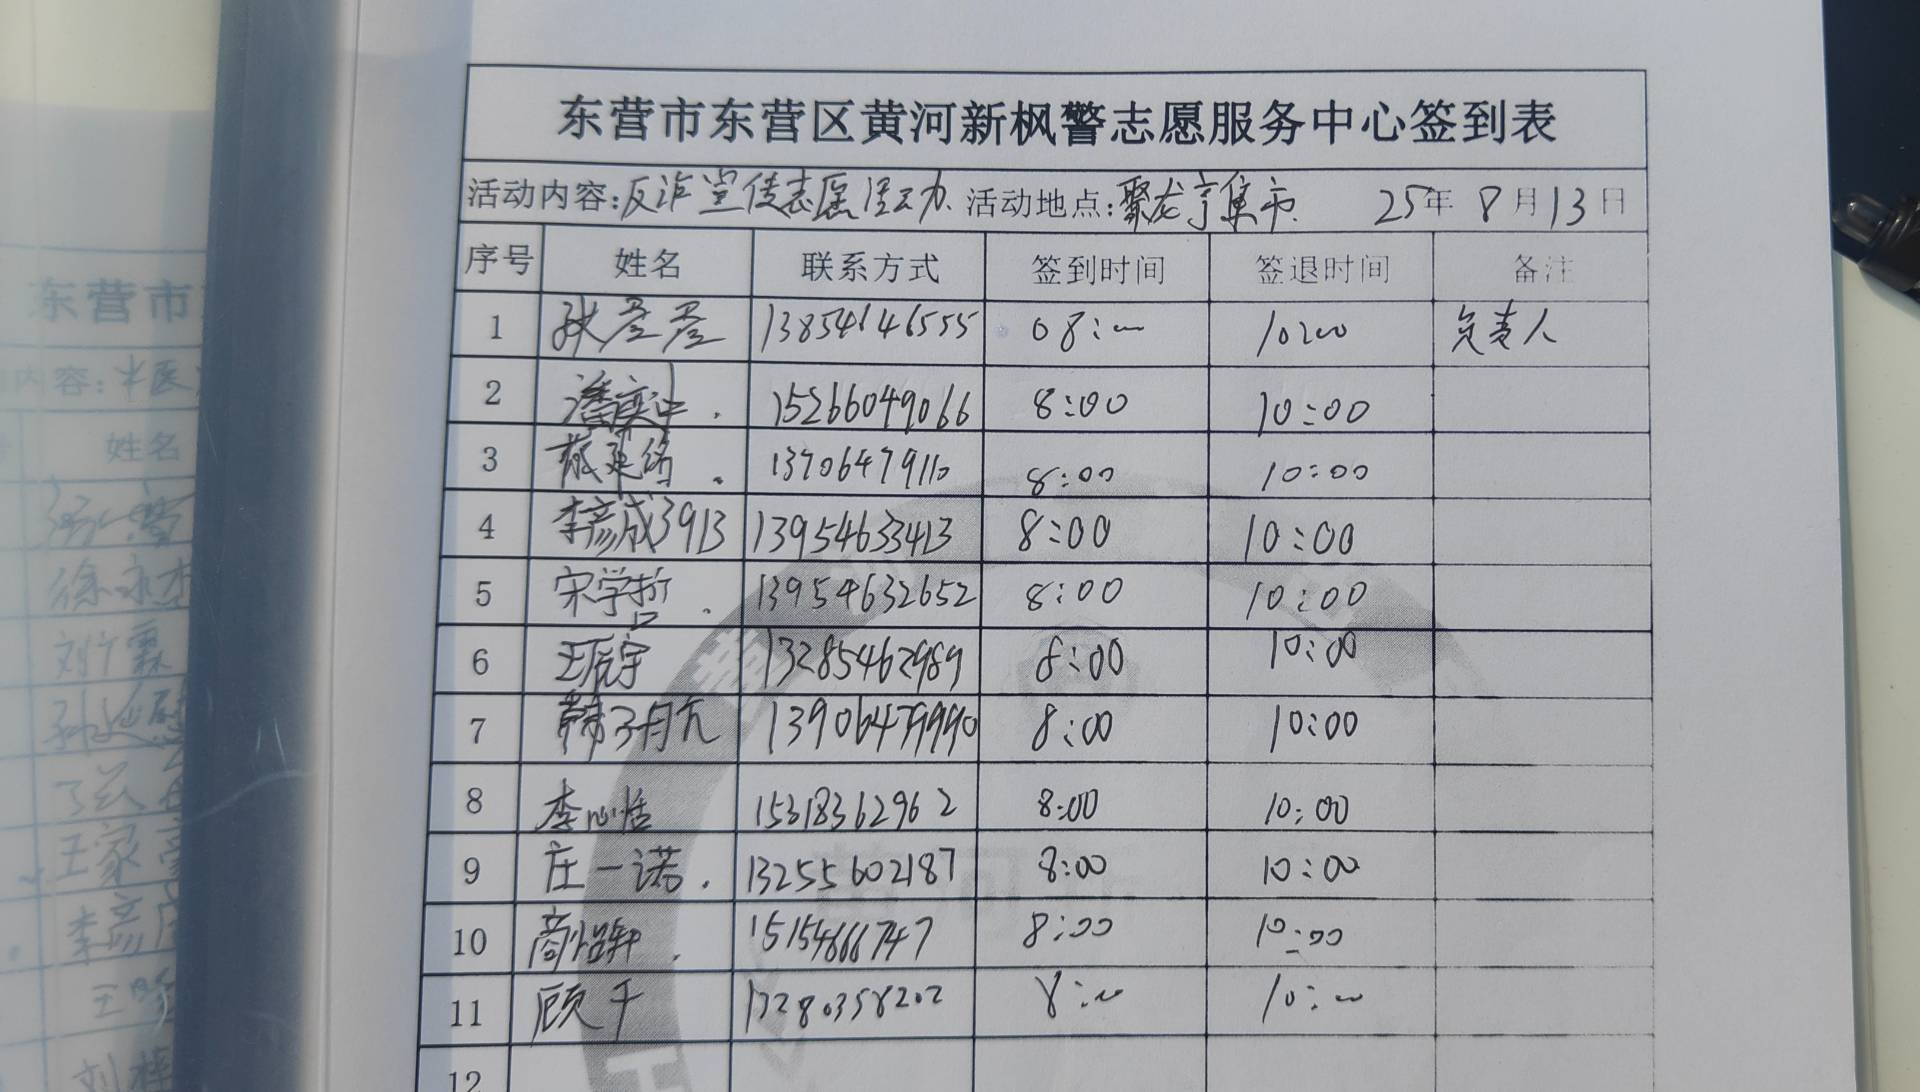 东营市东营区黄河新枫警志愿服务中心签到表
活动内容:反诈宣传志愿活动 活动地点:聚龙亭集市 25年 8月13日
序号 姓名 联系方式 签到时间 签退时间 备注
1 13854646555 08:00 10:00 负责人
2 潘奕中. 15266049066 8:00 10:00
3 13706479110 8:00 10:00
4 李彦成3913 13954633413 8:00 10:00
5 宋学哲. 13954632652 8:00 10:00
6 王辰宇 13285462989 8:00 10:00
7 13906479990 8:00 10:00
8 李心恬 15318362962 8:00 10:00
9 庄一诺. 13255602187 8:00 10:00
10 商怡轩. 15154666747 8:00 10:00
11 顾千 8:00 10:00
12
东营市
内容:中医
姓名
徐永杰
刘个霖
王家豪
李彦成
刘梓